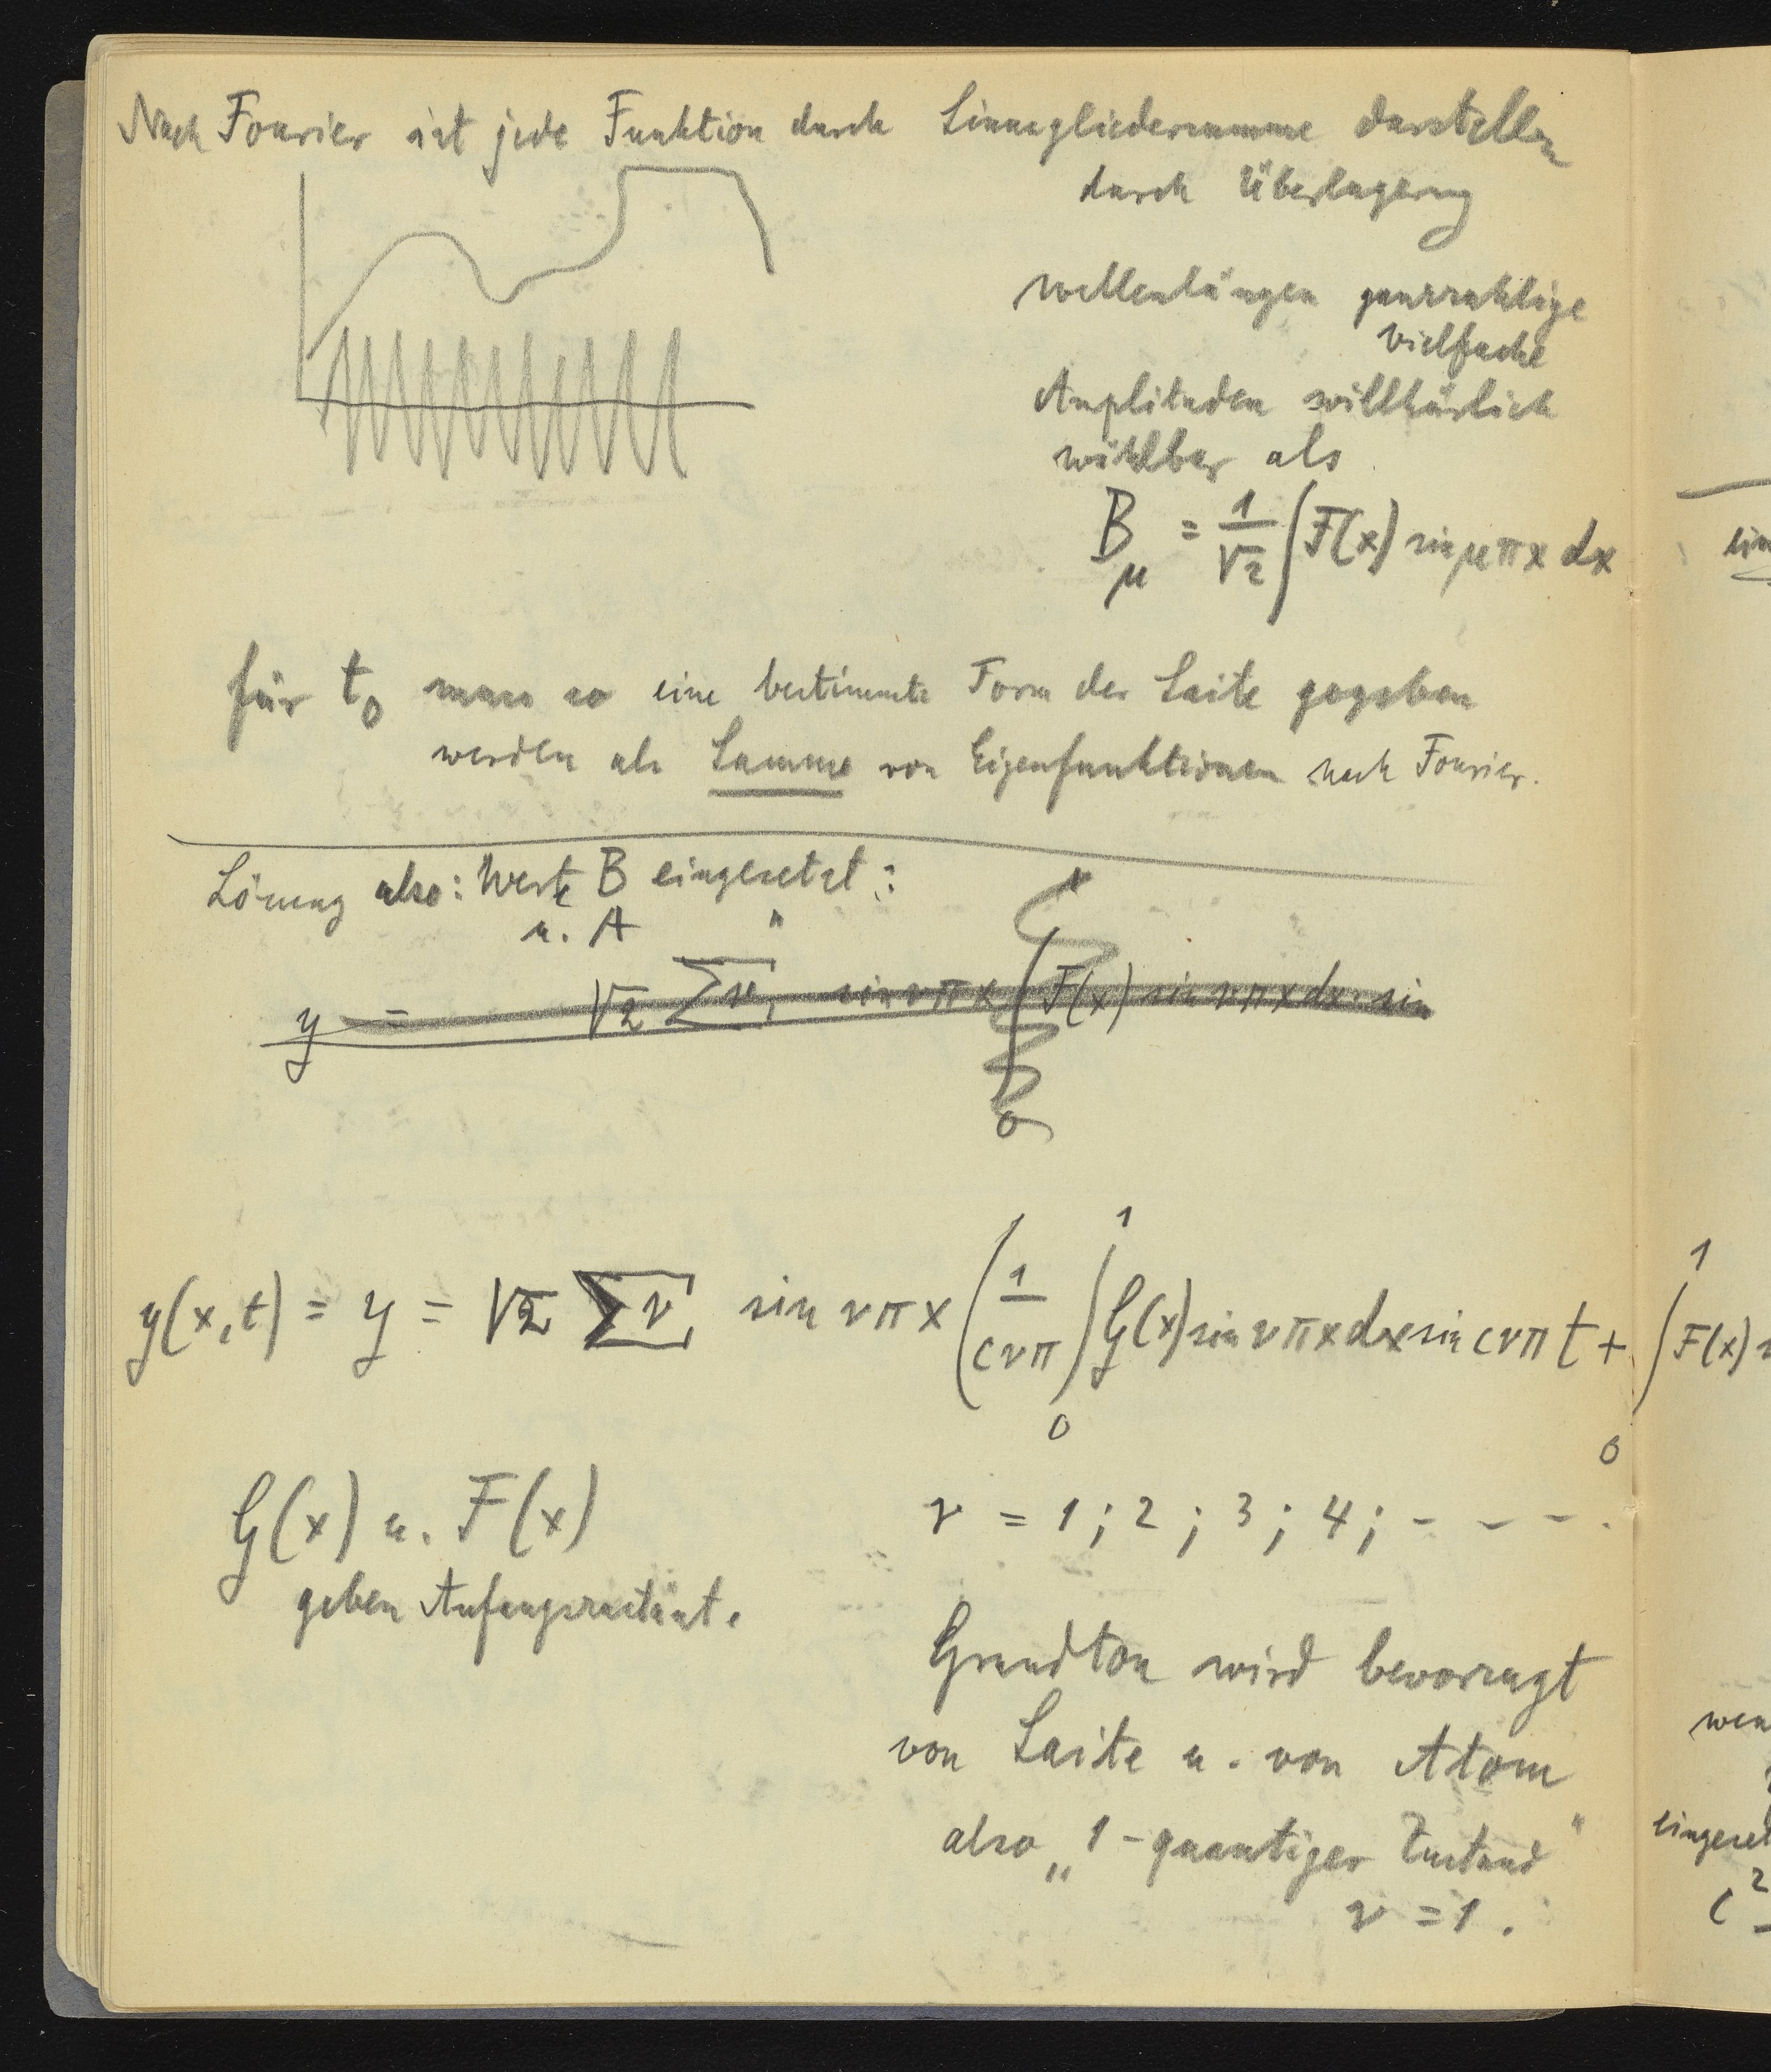 Nach Fourier ist jede Funktion durch Sinusgliedersumme darstellen
durch Überlagerung
Wellenlängen ganzzahlige
Vielfache
Amplituden willkürlich
wählbar als
B_μ = 1/√2 ∫ F(x) sin μπx dx
für t₀ muss so eine bestimmte Form der Saite gegeben
werden als Summe von Eigenfunktionen nach Fourier.
Lösung also: Werte B eingesetzt:
u. A "
y = √2 Σν, sin νπx ∫ F(x) sin νπx dx · sin
0
y(x,t) = y = √2 Σν, sin νπx (1/cνπ ∫₀¹ G(x) sin νπx dx sin cνπ t + ∫₀¹ F(x)
G(x) u. F(x)
geben Anfangszustänt.
ν = 1; 2; 3; 4; - - - .
Grundton wird bevorzugt
von Saite u. von Atom
also „1-quantiger Zustand"
ν = 1.